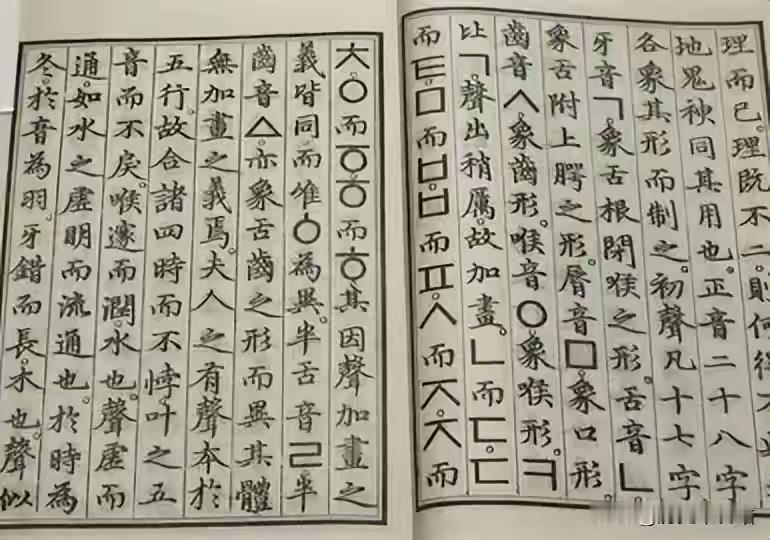 理而已。理既不二。則何得
地鬼神同其用也。正音二十八字
各象其形而制之。初聲凡十七字
牙音ㄱ。象舌根閉喉之形。舌音ㄴ
象舌附上腭之形。脣音ㅁ。象口形。
齒音ㅅ。象齒形。喉音ㅇ。象喉形。ㅋ
比ㄱ。聲出稍厲。故加畫。ㄴ而ㄷ。ㄷ
而ㅌ。ㅁ而ㅂ。ㅂ而ㅍ。ㅅ而ㅈ。ㅈ而
ㅊ。ㅇ而ㆆ。ㆆ而ㅎ。其因聲加畫之
義皆同。而唯ㆁ為異。半舌音ㄹ。半
齒音ㅿ。亦象舌齒之形而異其體。
無加畫之義焉。夫人之有聲本於
五行。故合諸四時而不悖。叶之五
音而不戾。喉邃而潤。水也。聲虛而
通。如水之虛明而流通也。於時為
冬。於音為羽。牙錯而長。木也。聲似